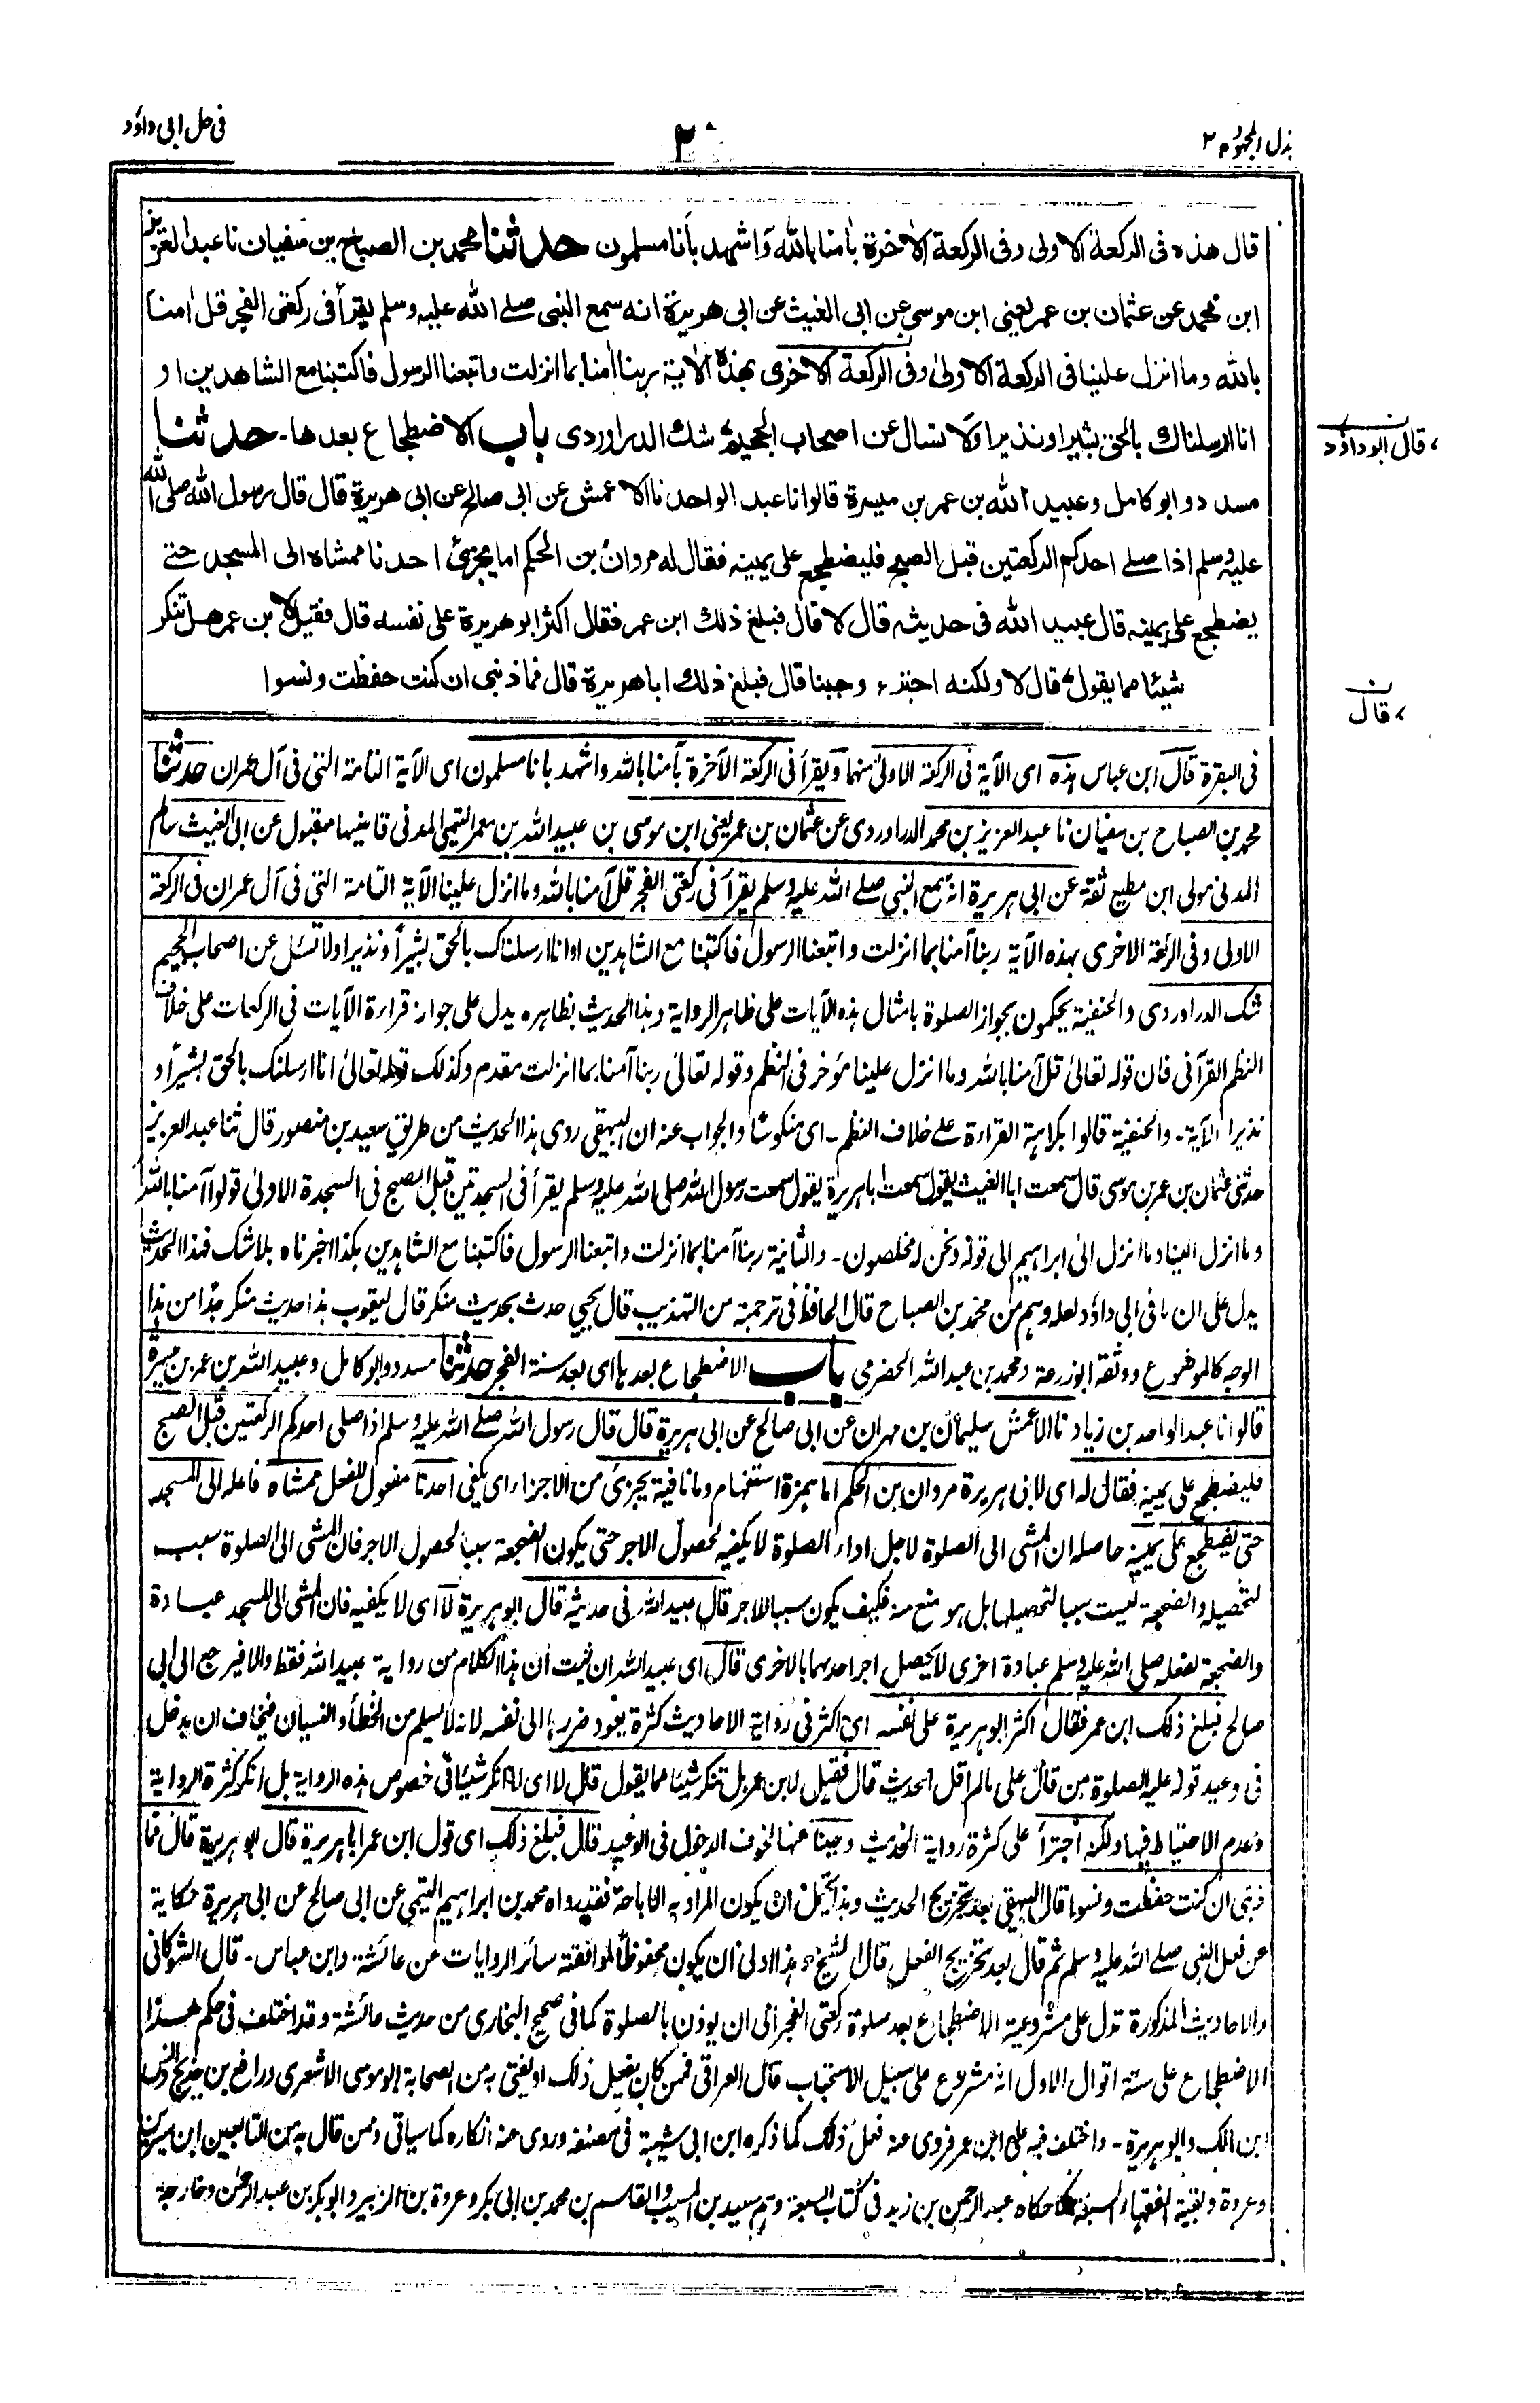 بذل المجهود ٢
٢
فى حل ابى داؤد
قال هذه فى الركعة الاولى وفى الركعة الاٰخرة باٰمنا بالله واشهد بأنا مسلمون حدثنا محمد بن الصباح بن سفيان نا عبد العزيز
ابن محمد عن عثمان بن عمر يعنى ابن موسى عن ابى الغيث عن ابى هريرة انه سمع النبى صلے الله عليه وسلم يقرأ فى ركعتى الفجر قل اٰمنا
بالله وما انزل علينا فى الركعة الاولىٰ وفى الركعة الاخرى بهذه الاٰية ربنا اٰمنا بما انزلت واتبعنا الرسول فاكتبنا مع الشاهدين او
انا ارسلناك بالحق بشيرا ونذيرا ولا تسال عن اصحاب الجحيم شك الدراوردى باب الاضطجاع بعدها۔ حدثنا
، قال ابو داؤد
مسدد وابو كامل وعبيد الله بن عمر بن ميسرة قالوا نا عبد الواحد نا الاعمش عن ابى صالح عن ابى هريرة قال قال رسول الله صلى الله
عليه وسلم اذا صلے احدكم الركعتين قبل الصبح فليضطجع على يمينه فقال له مروان بن الحكم اما يجزئ احدنا ممشاه الى المسجد حتے
يضطجع على يمينه قال عبيد الله فى حديثه قال لا قال فبلغ ذلك ابن عمر فقال اكثر ابو هريرة على نفسه قال فقيل لابن عمر هل تنكر
شيئا مما يقول قال لا ولكنه اجترء وجبنا قال فبلغ ذلك ابا هريرة قال فما ذنبى ان كنت حفظت ونسوا
، قال
فى البقرة قال ابن عباس هذه اى الآية فى الركعة الاولىٰ منهما ويقرأ فى الركعة الآخرة بآمنا بالله واشهد بانا مسلمون اى الآية التامة التى فى آل عمران حدثنا
محمد بن الصباح بن سفيان نا عبد العزيز بن محمد الدراوردى عن عثمان بن عمر يعنى ابن موسى بن عبيد الله بن معمر التيمى المدنى قاضيها مقبول عن ابى الغيث سالم
المدنى مولى ابن مطيع ثقة عن ابى هريرة انه سمع النبى صلے الله عليه وسلم يقرأ فى ركعتى الفجر قل آمنا بالله وما انزل علينا الآية التامة التى فى آل عمران فى الركعة
الاولى وفى الركعة الاخرى بهذه الآية ربنا آمنا بما انزلت واتبعنا الرسول فاكتبنا مع الشاهدين او انا ارسلناك بالحق بشيراً ونذيرا ولا تسئل عن اصحاب الجحيم
شك الدراوردى والحنفية يحكمون بجواز الصلوة بامثال هذه الآيات على ظاهر الرواية وهذا الحديث بظاهره يدل على جواز قراءة الآيات فى الركعات على خلاف
النظم القرآنى فان قوله تعالىٰ قل آمنا بالله وما انزل علينا مؤخر فى النظم وقوله تعالىٰ ربنا آمنا بما انزلت مقدم وكذلك قوله تعالىٰ انا ارسلنك بالحق بشيراً و
نذيرا الآية۔ والحنفية قالوا بكراهية القراءة علے خلاف النظم۔ اى منكوسًا والجواب عنه ان البيهقى روى هذا الحديث من طريق سعيد بن منصور قال ثنا عبد العزيز
حدثنى عثمان بن عمر بن موسى قال سمعت ابا الغيث يقول سمعت ابا هريرة يقول سمعت رسول الله صلى الله عليه وسلم يقرأ فى السجدتين قبل الصبح فى السجدة الاولىٰ قولوا آمنا بالله
وما انزل الينا وما انزل الىٰ ابراهيم الى قوله ونحن له مخلصون۔ والثانية ربنا آمنا بما انزلت واتبعنا الرسول فاكتبنا مع الشاهدين هكذا اخبرناه بلا شك فهذا الحديث
يدل على ان ما فى ابى داؤد لعله وهم من محمد بن الصباح قال الحافظ فى ترجمته من التهذيب قال يحيى حدث بحديث منكر قال يعقوب هذا حديث منكر جدًا من هذا
الوجه كالموضوع ووثقه ابو زرعة ومحمد بن عبد الله الحضرمى باب الاضطجاع بعدها اى بعد سنة الفجر حدثنا مسدد وابو كامل وعبيد الله بن عمر بن ميسرة
قالوا نا عبد الواحد بن زياد نا الاعمش سليمان بن مهران عن ابى صالح عن ابى هريرة قال قال رسول الله صلے الله عليه وسلم اذا صلى احدكم الركعتين قبل الصبح
فليضطجع على يمينه فقال له اى لابى هريرة مروان بن الحكم اما بهمزة استفهام وما نافية يجزئ من الاجزاء اى يكفى احدنا مفعول للفعل ممشاه فاعله الى المسجد
حتى يضطجع على يمينه حاصله ان المشى الى الصلوة لاجل اداء الصلوة لا يكفيه لحصول الاجر حتى يكون الضجعة سببا لحصول الاجر فان المشى الى الصلوة سبب
لتحصيله والضجعة ليست سببا لتحصيلها بل هو منع منه فكيف يكون سببا للاجر قال عبيد الله فى حديثه قال ابو هريرة لا اى لا يكفيه فان المشى الى المسجد عبادة
والضجعة لفعله صلى الله عليه وسلم عبادة اخرى لا يحصل اجر احدهما بالاخرى قال اى عبيد الله ان ثبت ان هذا الكلام من رواية عبيد الله فقط والا فيرجع الى ابى
صالح فبلغ ذلك ابن عمر فقال اكثر ابو هريرة على نفسه اى اكثر فى رواية الاحاديث كثرة يعود ضررها الى نفسه لانه لا يسلم من الخطأ والنسيان فيخاف ان يدخل
فى وعيد قوله عليه الصلوة من قال على ما لم اقل الحديث قال فقيل لابن عمر هل تنكر شيئا مما يقول قال لا اى لا انكر شيئا فى خصوص هذه الرواية بل انكر كثرة الرواية
وعدم الاحتياط فيها ولكنه اجترأ على كثرة رواية الحديث وجبنا عنها لخوف الدخول فى الوعيد قال فبلغ ذلك اى قول ابن عمر ابا هريرة قال ابو هريرة قال فما
ذنبى ان كنت حفظت ونسوا قال البيهقى بعد تخريج الحديث وهذا يحتمل ان يكون المراد به الاباحة فقد رواه محمد بن ابراهيم التيمى عن ابى صالح عن ابى هريرة حكاية
عن فعل النبى صلے الله عليه وسلم ثم قال بعد تخريج الفعل قال الشيخ وهذا اولى ان يكون محفوظاً لموافقته سائر الروايات عن عائشة وابن عباس۔ قال الشوكانى
والاحاديث المذكورة تدل على مشروعية الاضطجاع بعد صلوة ركعتى الفجر الى ان يوذن بالصلوة كما فى صحيح البخارى من حديث عائشة وقد اختلف فى حكم هذا
الاضطجاع على ستة اقوال الاول انه مشروع على سبيل الاستحباب قال العراقى فمن كان يفعل ذلك او يفتى به من الصحابة ابو موسى الاشعرى ورافع بن خديج وانس
ابن مالك وابو هريرة۔ واختلف فيه على ابن عمر فروى عنه فعل ذلك كما ذكره ابن ابى شيبة فى مصنفه وروى عنه انكاره كما سياتى وممن قال به من التابعين ابن سيرين
وعروة وبقية الفقهاء السبعة كما حكاه عبد الرحمن بن زيد فى كتاب السبعة وهم سعيد بن المسيب والقاسم بن محمد بن ابى بكر وعروة بن الزبير وابو بكر بن عبد الرحمٰن وخارجة